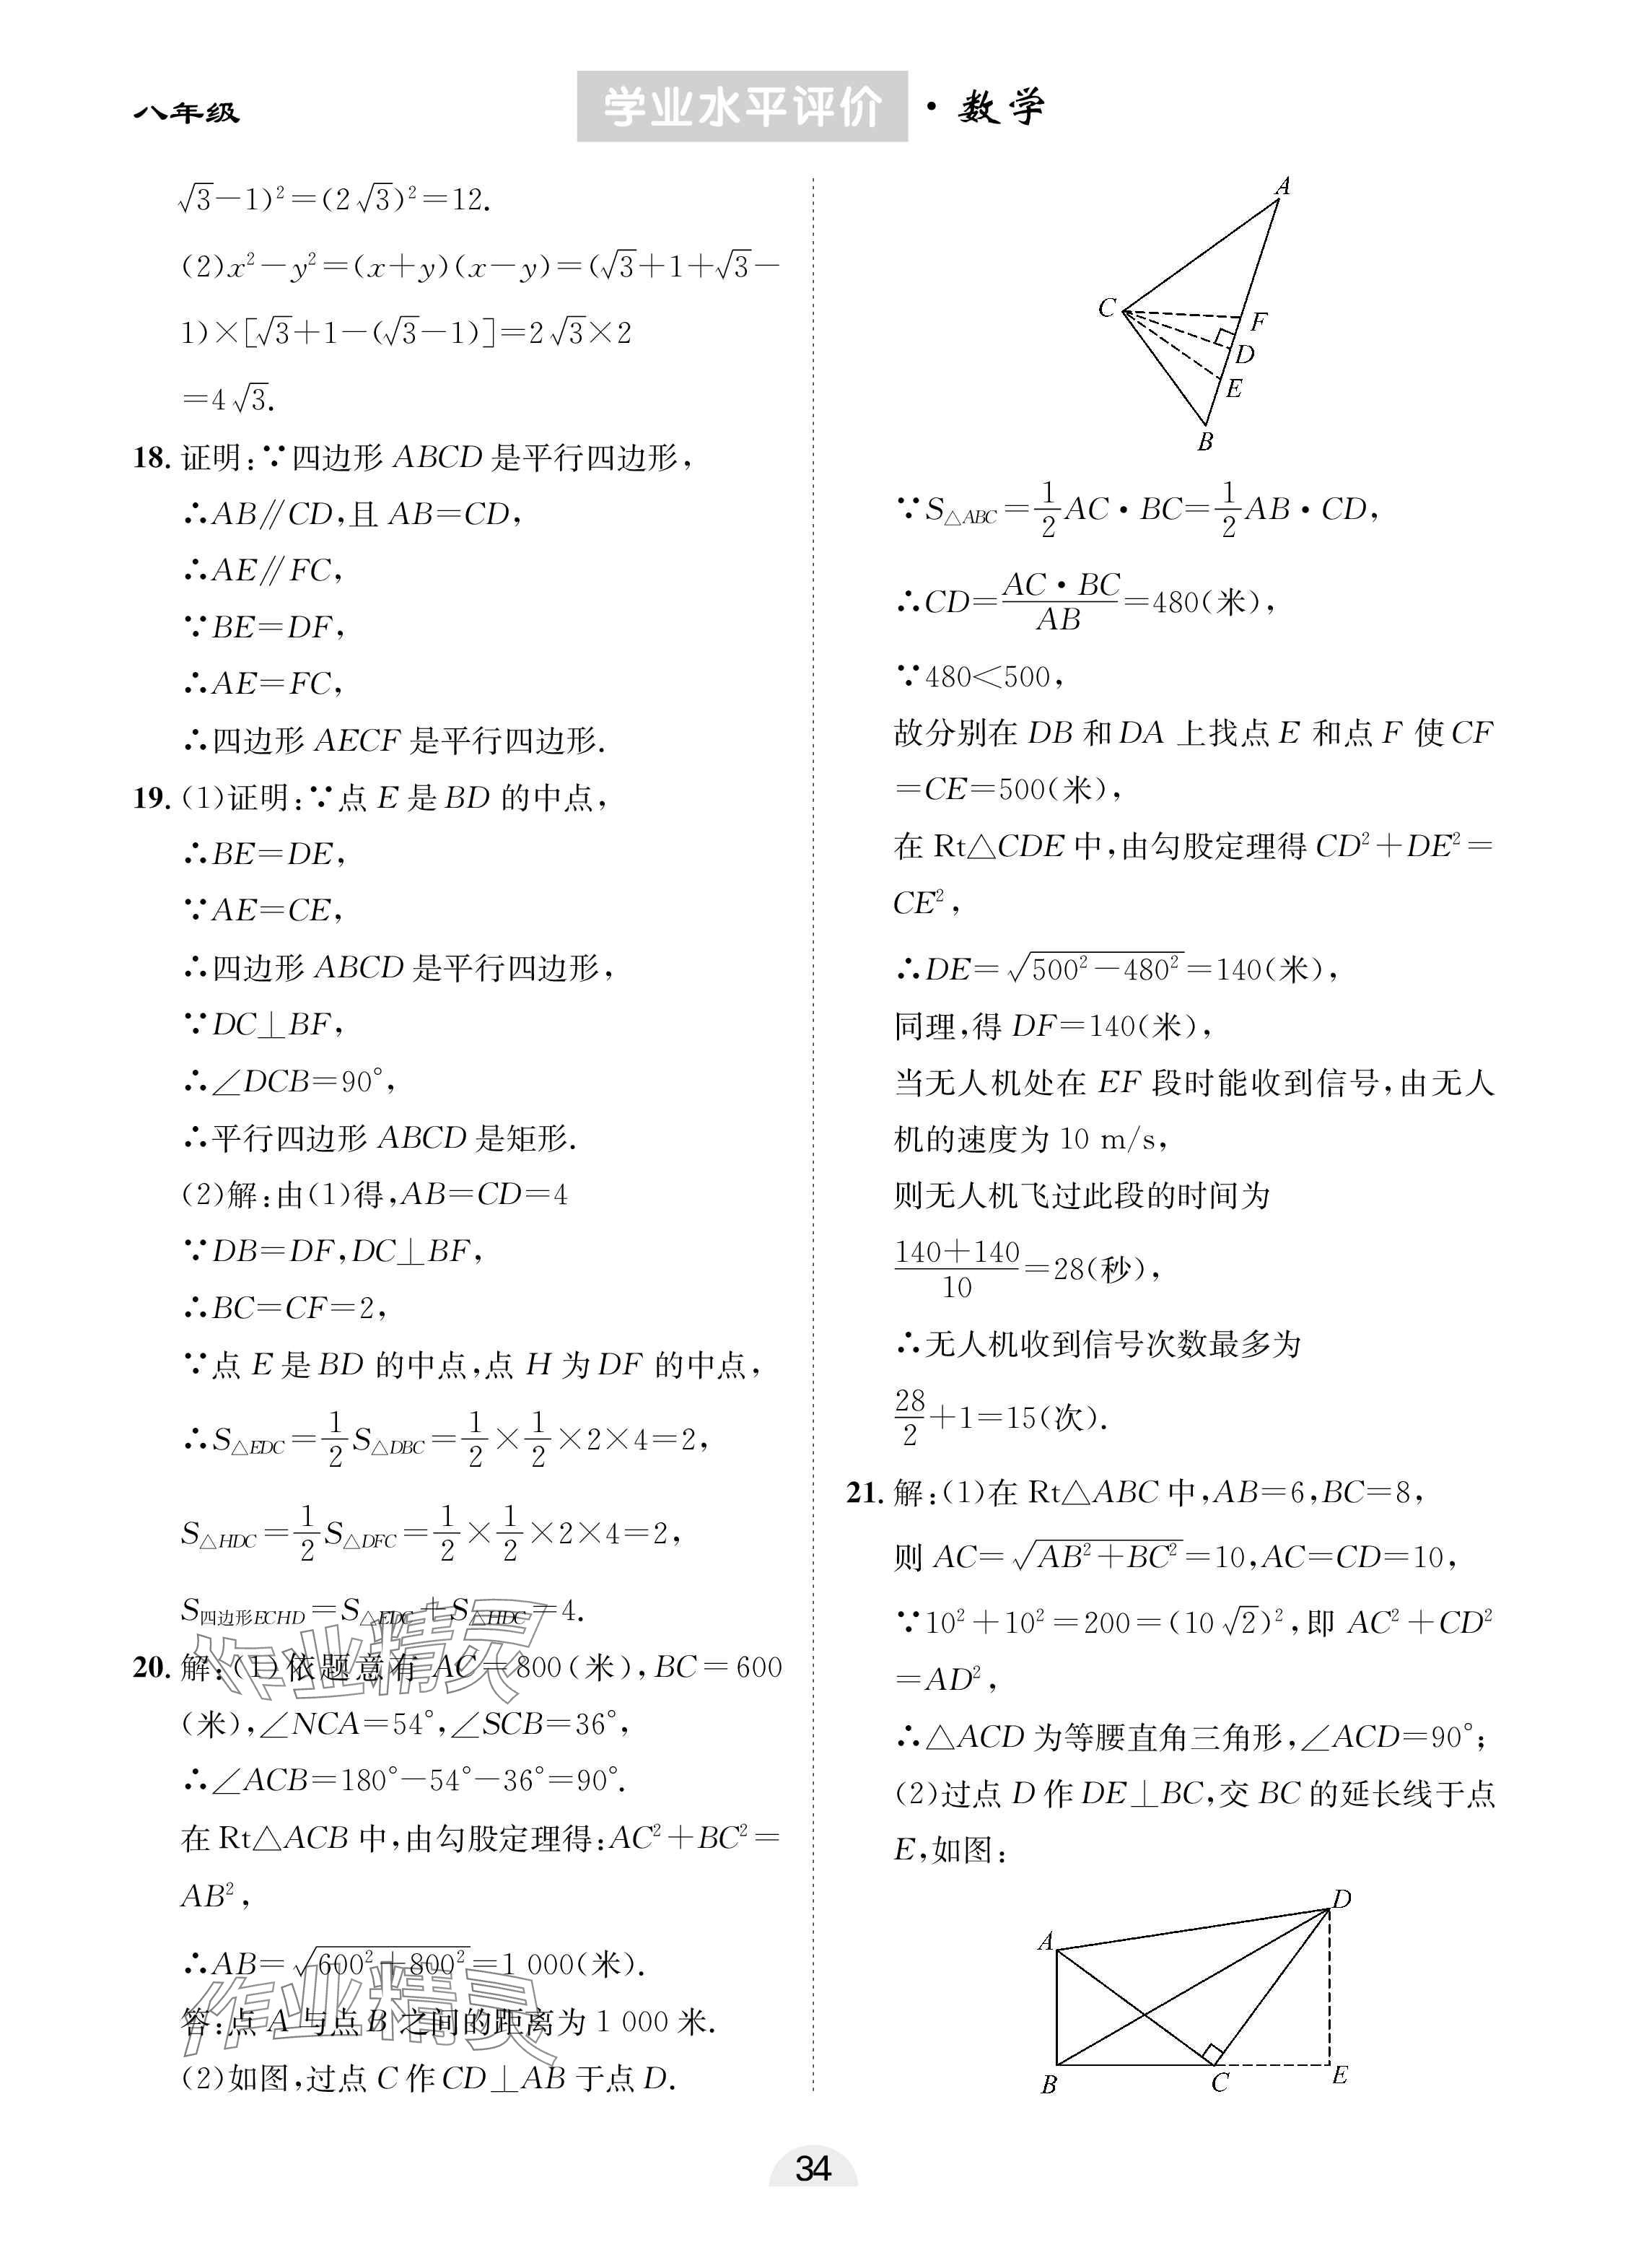 八年级
学业水平评价·数学
√3－1)²＝(2√3)²＝12.
(2)x²－y²＝(x＋y)(x－y)＝(√3＋1＋√3－
1)×[√3＋1－(√3－1)]＝2√3×2
＝4√3.
18. 证明:∵四边形 ABCD 是平行四边形,
∴AB∥CD,且 AB＝CD,
∴AE∥FC,
∵BE＝DF,
∴AE＝FC,
∴四边形 AECF 是平行四边形.
19. (1)证明:∵点 E 是 BD 的中点,
∴BE＝DE,
∵AE＝CE,
∴四边形 ABCD 是平行四边形,
∵DC⊥BF,
∴∠DCB＝90°,
∴平行四边形 ABCD 是矩形.
(2)解:由(1)得,AB＝CD＝4
∵DB＝DF,DC⊥BF,
∴BC＝CF＝2,
∵点 E 是 BD 的中点,点 H 为 DF 的中点,
∴S△EDC＝1/2 S△DBC＝1/2×1/2×2×4＝2,
S△HDC＝1/2 S△DFC＝1/2×1/2×2×4＝2,
S四边形ECHD＝S△EDC＋S△HDC＝4.
20. 解:(1)依题意有 AC＝800(米),BC＝600
(米),∠NCA＝54°,∠SCB＝36°,
∴∠ACB＝180°－54°－36°＝90°.
在 Rt△ACB 中,由勾股定理得:AC²＋BC²＝
AB²,
∴AB＝√(600²＋800²)＝1 000(米).
答:点 A 与点 B 之间的距离为 1 000 米.
(2)如图,过点 C 作 CD⊥AB 于点 D.
作业精灵
作业精灵
A
C
F
D
E
B
∵S△ABC＝1/2 AC·BC＝1/2 AB·CD,
∴CD＝AC·BC/AB＝480(米),
∵480＜500,
故分别在 DB 和 DA 上找点 E 和点 F 使 CF
＝CE＝500(米),
在 Rt△CDE 中,由勾股定理得 CD²＋DE²＝
CE²,
∴DE＝√(500²－480²)＝140(米),
同理,得 DF＝140(米),
当无人机处在 EF 段时能收到信号,由无人
机的速度为 10 m/s,
则无人机飞过此段的时间为
(140＋140)/10＝28(秒),
∴无人机收到信号次数最多为
28/2＋1＝15(次).
21. 解:(1)在 Rt△ABC 中,AB＝6,BC＝8,
则 AC＝√(AB²＋BC²)＝10,AC＝CD＝10,
∵10²＋10²＝200＝(10√2)²,即 AC²＋CD²
＝AD²,
∴△ACD 为等腰直角三角形,∠ACD＝90°;
(2)过点 D 作 DE⊥BC,交 BC 的延长线于点
E,如图:
D
A
B
C
E
34